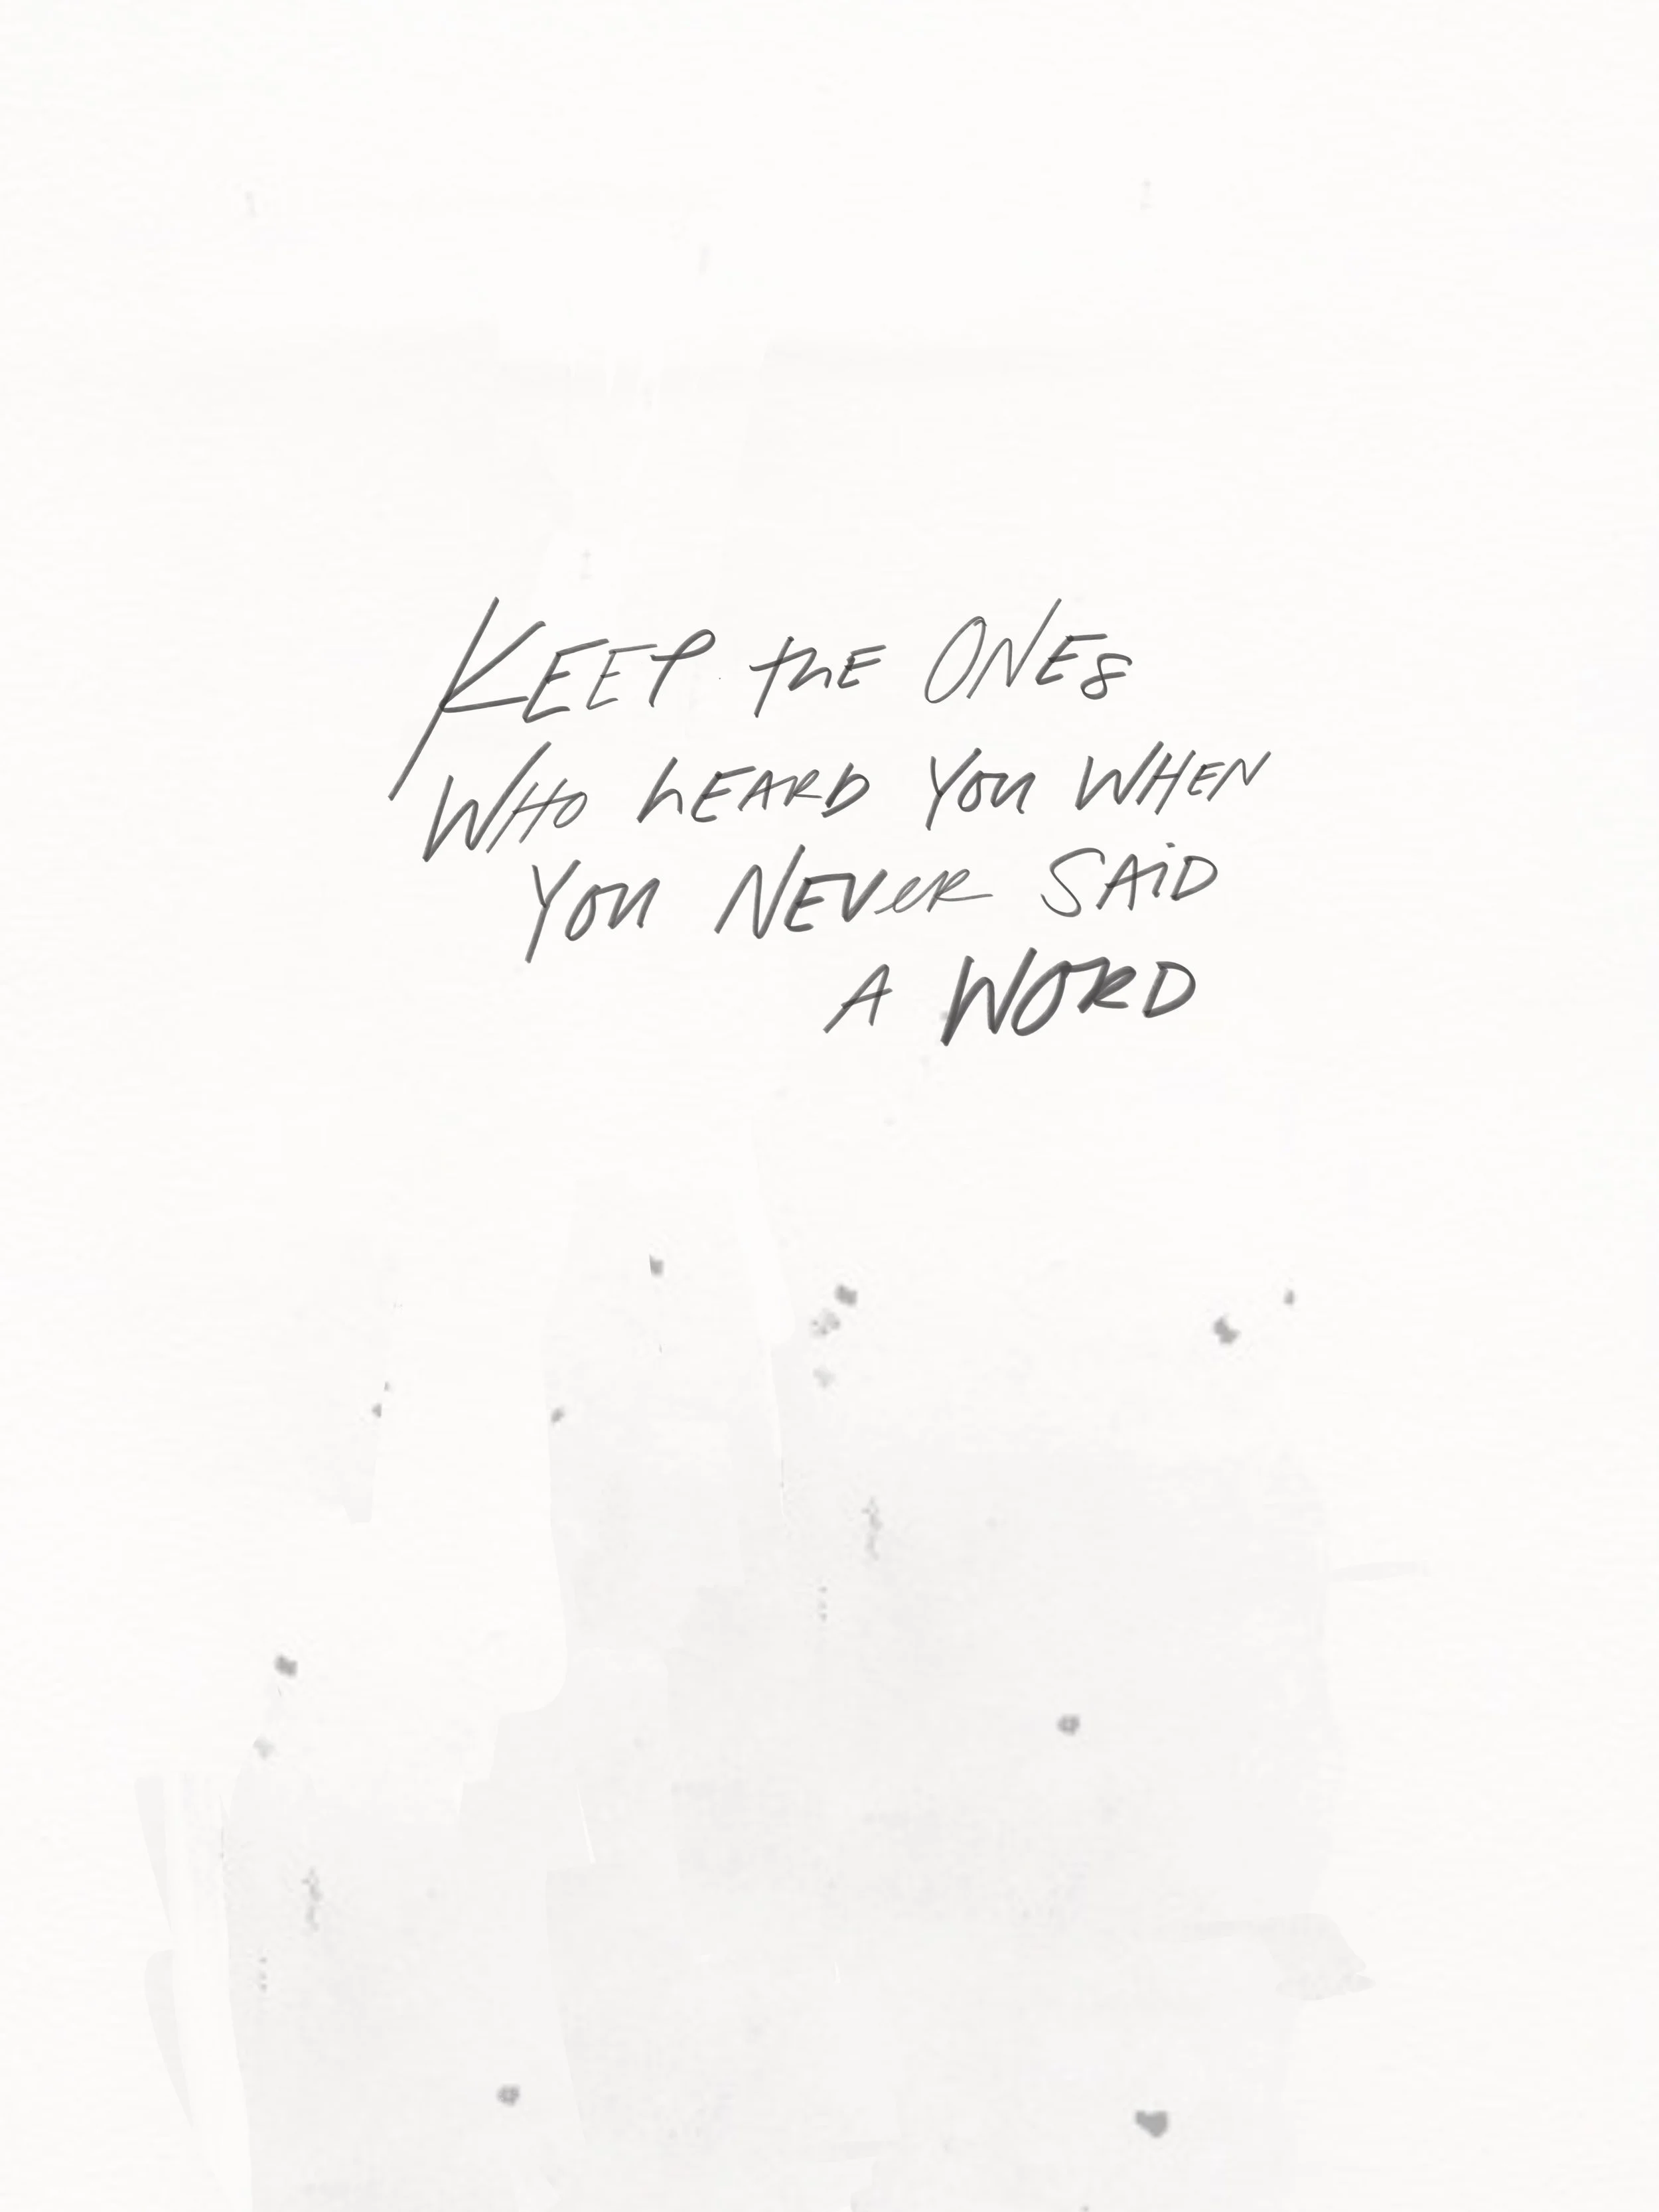 KEEP the ONEs
WHO hEARD You WHEN
You NEVeR SAiD
A WORD